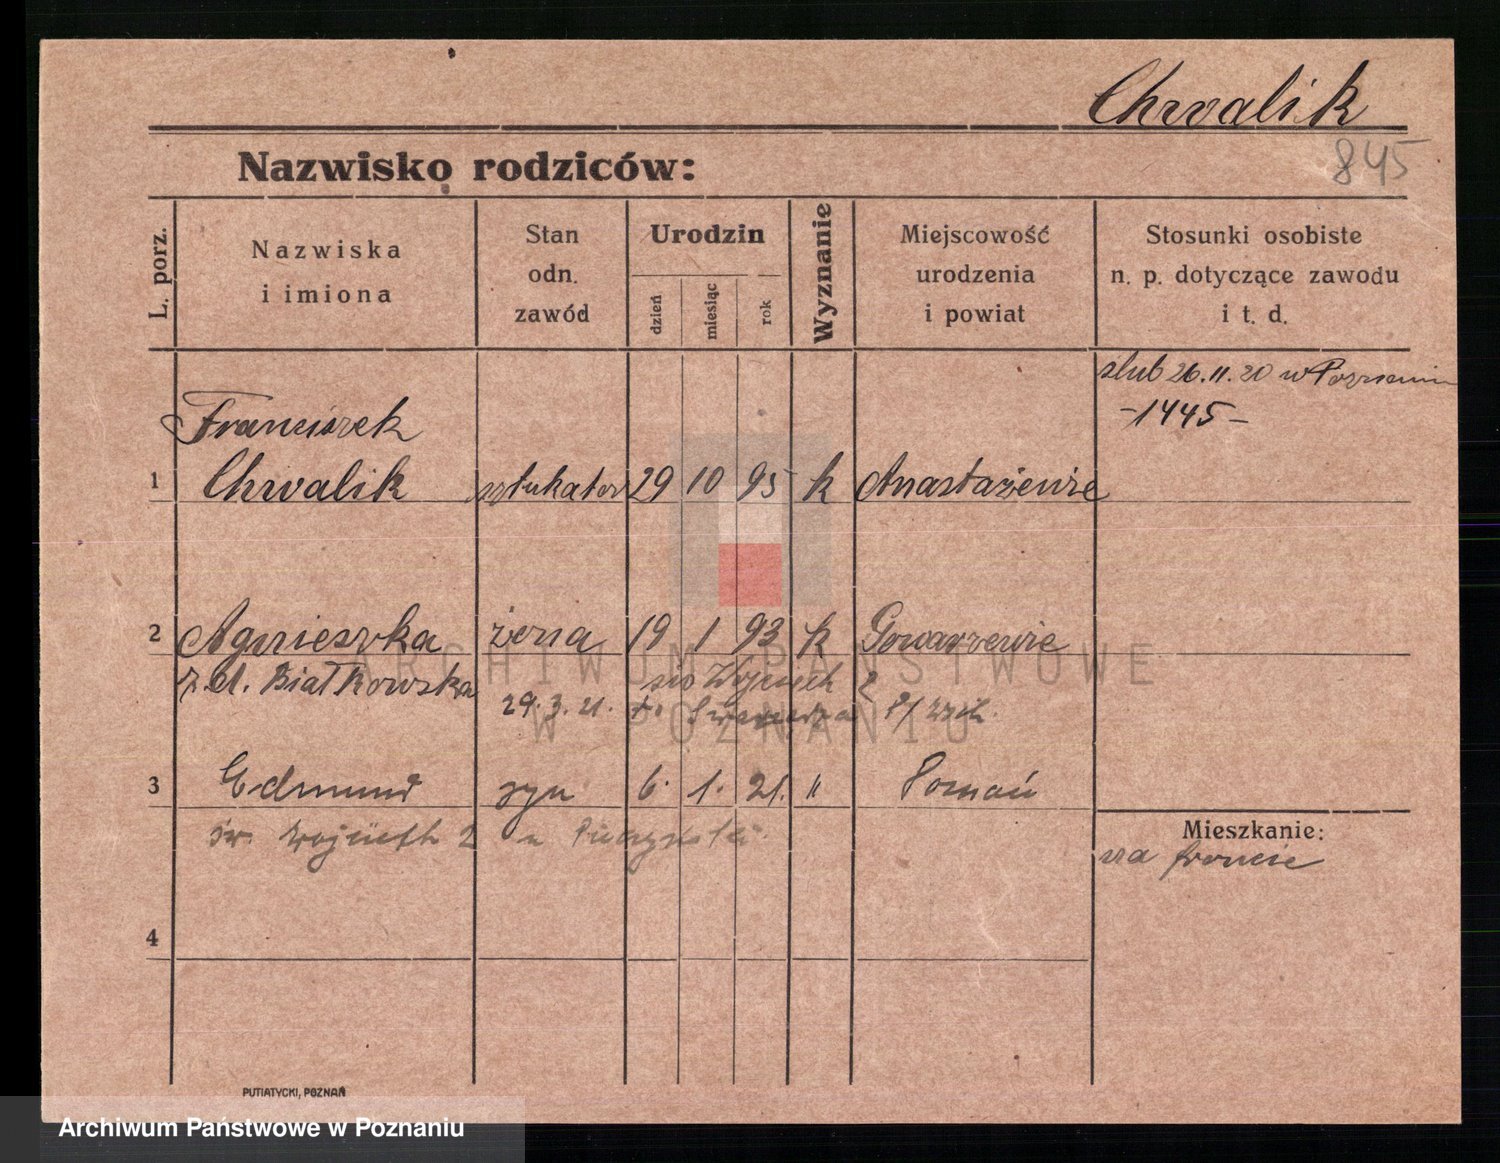 Chwalik
845
Nazwisko rodziców:
L. porz.
Nazwiska
i imiona
Stan
odn.
zawód
Urodzin
dzień
miesiąc
rok
Wyznanie
Miejscowość
urodzenia
i powiat
Stosunki osobiste
n. p. dotyczące zawodu
i t. d.
ślub 26.11.20 w Poznaniu
-1445-
Franciszek
1 Chwalik sztukator 29 10 95 k Anastażewie
2 Agnieszka żena 19 1 93 k Gowarzewie
z d. Białkowska
29.3.21.
3 Edmund syn 6. 1. 21. " Poznań
św. Wojciech 2
Mieszkanie:
na froncie
4
PUTIATYCKI, POZNAŃ
ARCHIWUM PAŃSTWOWE
W POZNANIU
Archiwum Państwowe w Poznaniu